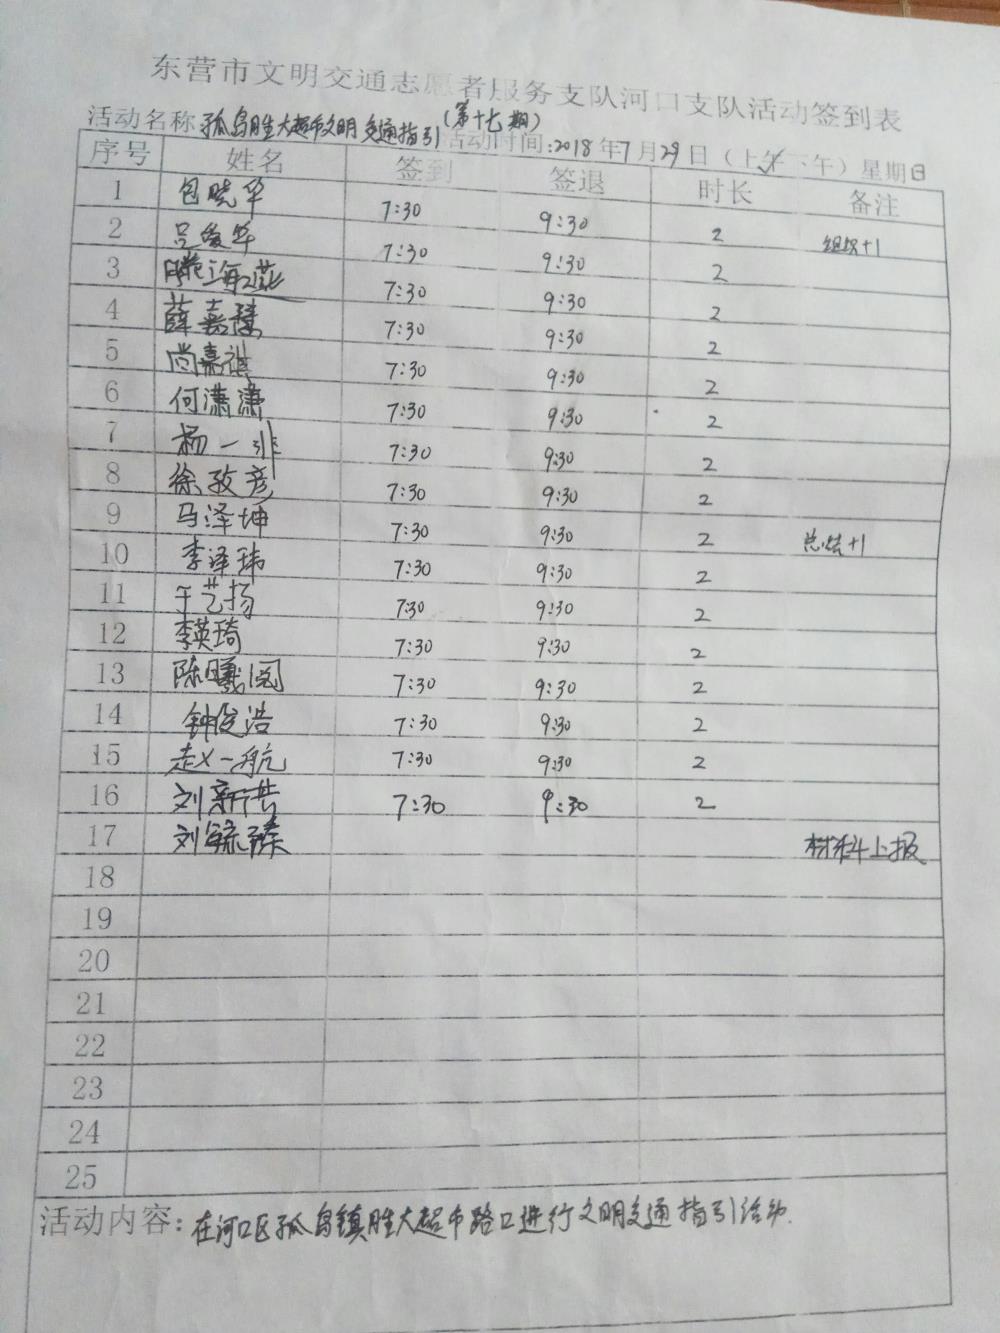 东营市文明交通志愿者服务支队河口支队活动签到表
活动名称 孤岛胜大超市文明交通指引(第十七期) 活动时间:2018年7月29日(上午 下午)星期日
序号 姓名 签到 签退 时长 备注
1 包晓华 7:30 9:30 2 组织+1
2 吕俊华 7:30 9:30 2
3 滕海燕 7:30 9:30 2
4 薛嘉臻 7:30 9:30 2
5 尚嘉祺 7:30 9:30 2
6 何潇潇 7:30 9:30 2
7 杨一非 7:30 9:30 2
8 徐孜彦 7:30 9:30 2
9 马泽坤 7:30 9:30 2 总结+1
10 李泽玮 7:30 9:30 2
11 于艺扬 7:30 9:30 2
12 李英琦 7:30 9:30 2
13 陈曦阅 7:30 9:30 2
14 钟俊浩 7:30 9:30 2
15 赵一航 7:30 9:30 2
16 刘新洪 7:30 9:30 2
17 刘毓臻 材料上报
18
19
20
21
22
23
24
25
活动内容:在河口区孤岛镇胜大超市路口进行文明交通指引活动.